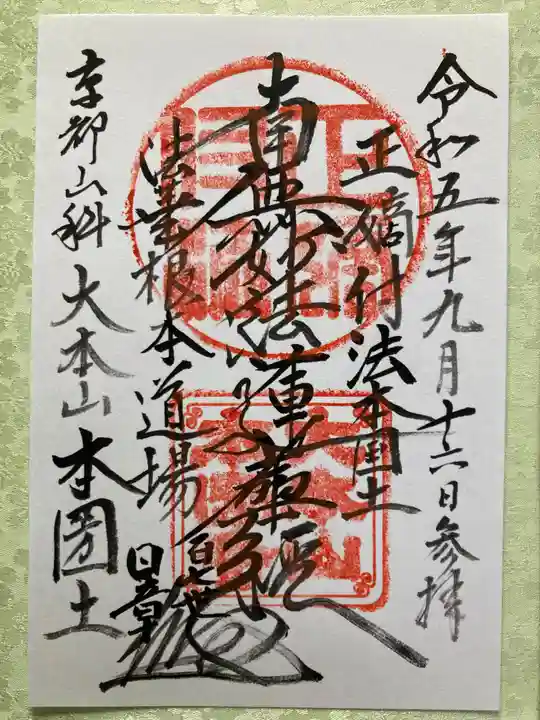 令和五年九月十六日参拝
正嫡付法本国土
南無妙法蓮華経
法華根本道場
日章
京都山科 大本山 本圀土